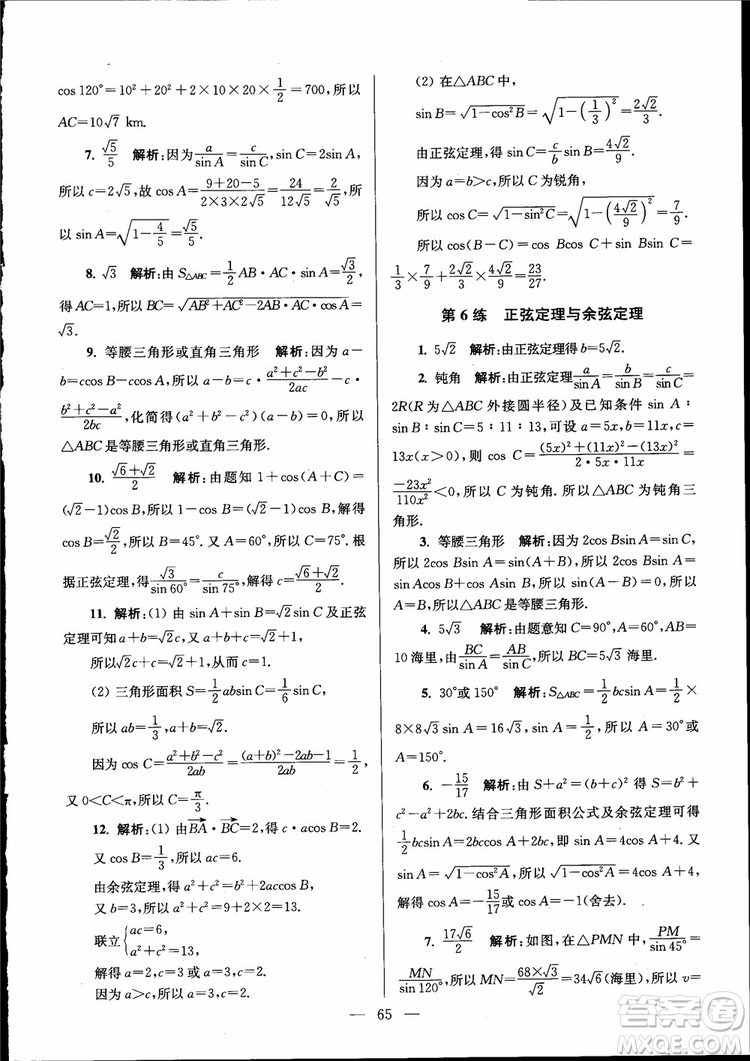 cos 120°=10²+20²+2×10×20×1/2=700,所以
AC=10√7 km.
7. √5/5 解析:因为a/sin A=c/sin C,sin C=2sin A,
所以 c=2√5,故 cos A=(9+20-5)/(2×3×2√5)=24/(12√5)=2/√5,所
以 sin A=√(1-4/5)=√5/5.
8. √3 解析:由 S△ABC=1/2 AB·AC·sin A=√3/2,
得 AC=1,所以 BC=√(AB²+AC²-2AB·AC·cos A)=
√3.
9. 等腰三角形或直角三角形 解析:因为 a-
b=ccos B-ccos A,所以 a-b=c·(a²+c²-b²)/2ac-c·
(b²+c²-a²)/2bc,化简得(a²+b²-c²)(a-b)=0,所以
△ABC是等腰三角形或直角三角形.
10. (√6+√2)/2 解析:由题知 1+cos B=
(√2-1)cos B,所以 1-cos B=
以 B=45°. 又 A=60°,所以 C=75°. 根
据正弦定理得 √3/sin 60°=c/sin 75°,所以 c=(√6+√2)/2.
11. 解析:(1) 由 sin A+sin B=√2sin C 及正弦
定理可知 a+b=√2c,又 a+b+c=√2+1,
所以√2c+c=√2+1,从而 c=1.
(2) 三角形面积 S=1/2 absin C=1/6 sin C,
所以 ab=1/3,a+b=√2.
因为 cos C=(a²+b²-c²)/2ab=((a+b)²-2ab-1)/2ab=1/2,
又 0<C<π,所以 C=π/3.
12. 解析:(1) 由BA·BC=2,得 c·acos B=2.
又 cos B=1/3,所以 ac=6.
由余弦定理,得 a²+c²=b²+2accos B.
又 b=3,所以 a²+c²=9+2×2=13.
联立{ac=6, a²+c²=13,
解得 a=2,c=3 或 a=3,c=2.
因为 a>c,所以 a=3,c=2.
(2) 在△ABC 中,
sin B=√(1-cos²B)=√(1-(1/3)²)=2√2/3.
由正弦定理,得 sin C=c/b sin B=4√2/9.
因为 a=b>c,所以 C 为锐角,
所以 cos C=√(1-sin²C)=√(1-(4√2/9)²)=7/9.
所以 cos(B-C)=cos Bcos C+sin Bsin C=
1/3×7/9+2√2/3×4√2/9=23/27.
第 6 练 正弦定理与余弦定理
1. 5√2 解析:由正弦定理得 b=5√2.
2. 钝角 解析:由正弦定理a/sin A=b/sin B=c/sin C=
2R(R 为△ABC 外接圆半径)及已知条件 sin A:
sin B:sin C=5:11:13,可设 a=5x,b=11x,c=
13x(x>0),则 cos C=((5x)²+(11x)²-(13x)²)/(2·5x·11x)=
-23x²/110x²<0,所以 C 为钝角,所以△ABC 为钝角三
角形.
3. 等腰三角形 解析:因为 2cos Bsin A=sin C,
所以 2cos Bsin A=sin(A+B)=sin Acos B+cos Asin B,所以
sin Acos B-cos Asin B=0,所以 sin(A-B)=0,所以
A=B,所以△ABC 为等腰三角形.
4. 5√3 解析:由题意知 C=90°,A=60°,AB=
10 海里,由BC/sin A=AB/sin C,所以 BC=5√3 海里.
5. 30°或 150° 解析:S△ABC=1/2 bcsin A=1/2×
8×8√3 sin A=16√3,所以 sin A=1/2,所以 A=30°或
A=150°.
6. -15/17 解析:由 S+a²=(b+c)² 得 S=b²+
c²-a²+2bc. 结合三角形面积公式及余弦定理得
1/2 bcsin A=2bccos A+2bc,即 sin A=4cos A+4. 又
sin A=√(1-cos²A),所以√(1-cos²A)=4cos A+4,
解得 cos A=-15/17或 cos A=-1(舍去).
7. 17√6/2 解析:如图,在△PMN 中,PM/sin 45°=
MN/sin 120°,所以 MN=68×√3/√2=34√6(海里),所以 v=
— 65 —
答案圈
MXQE.COM